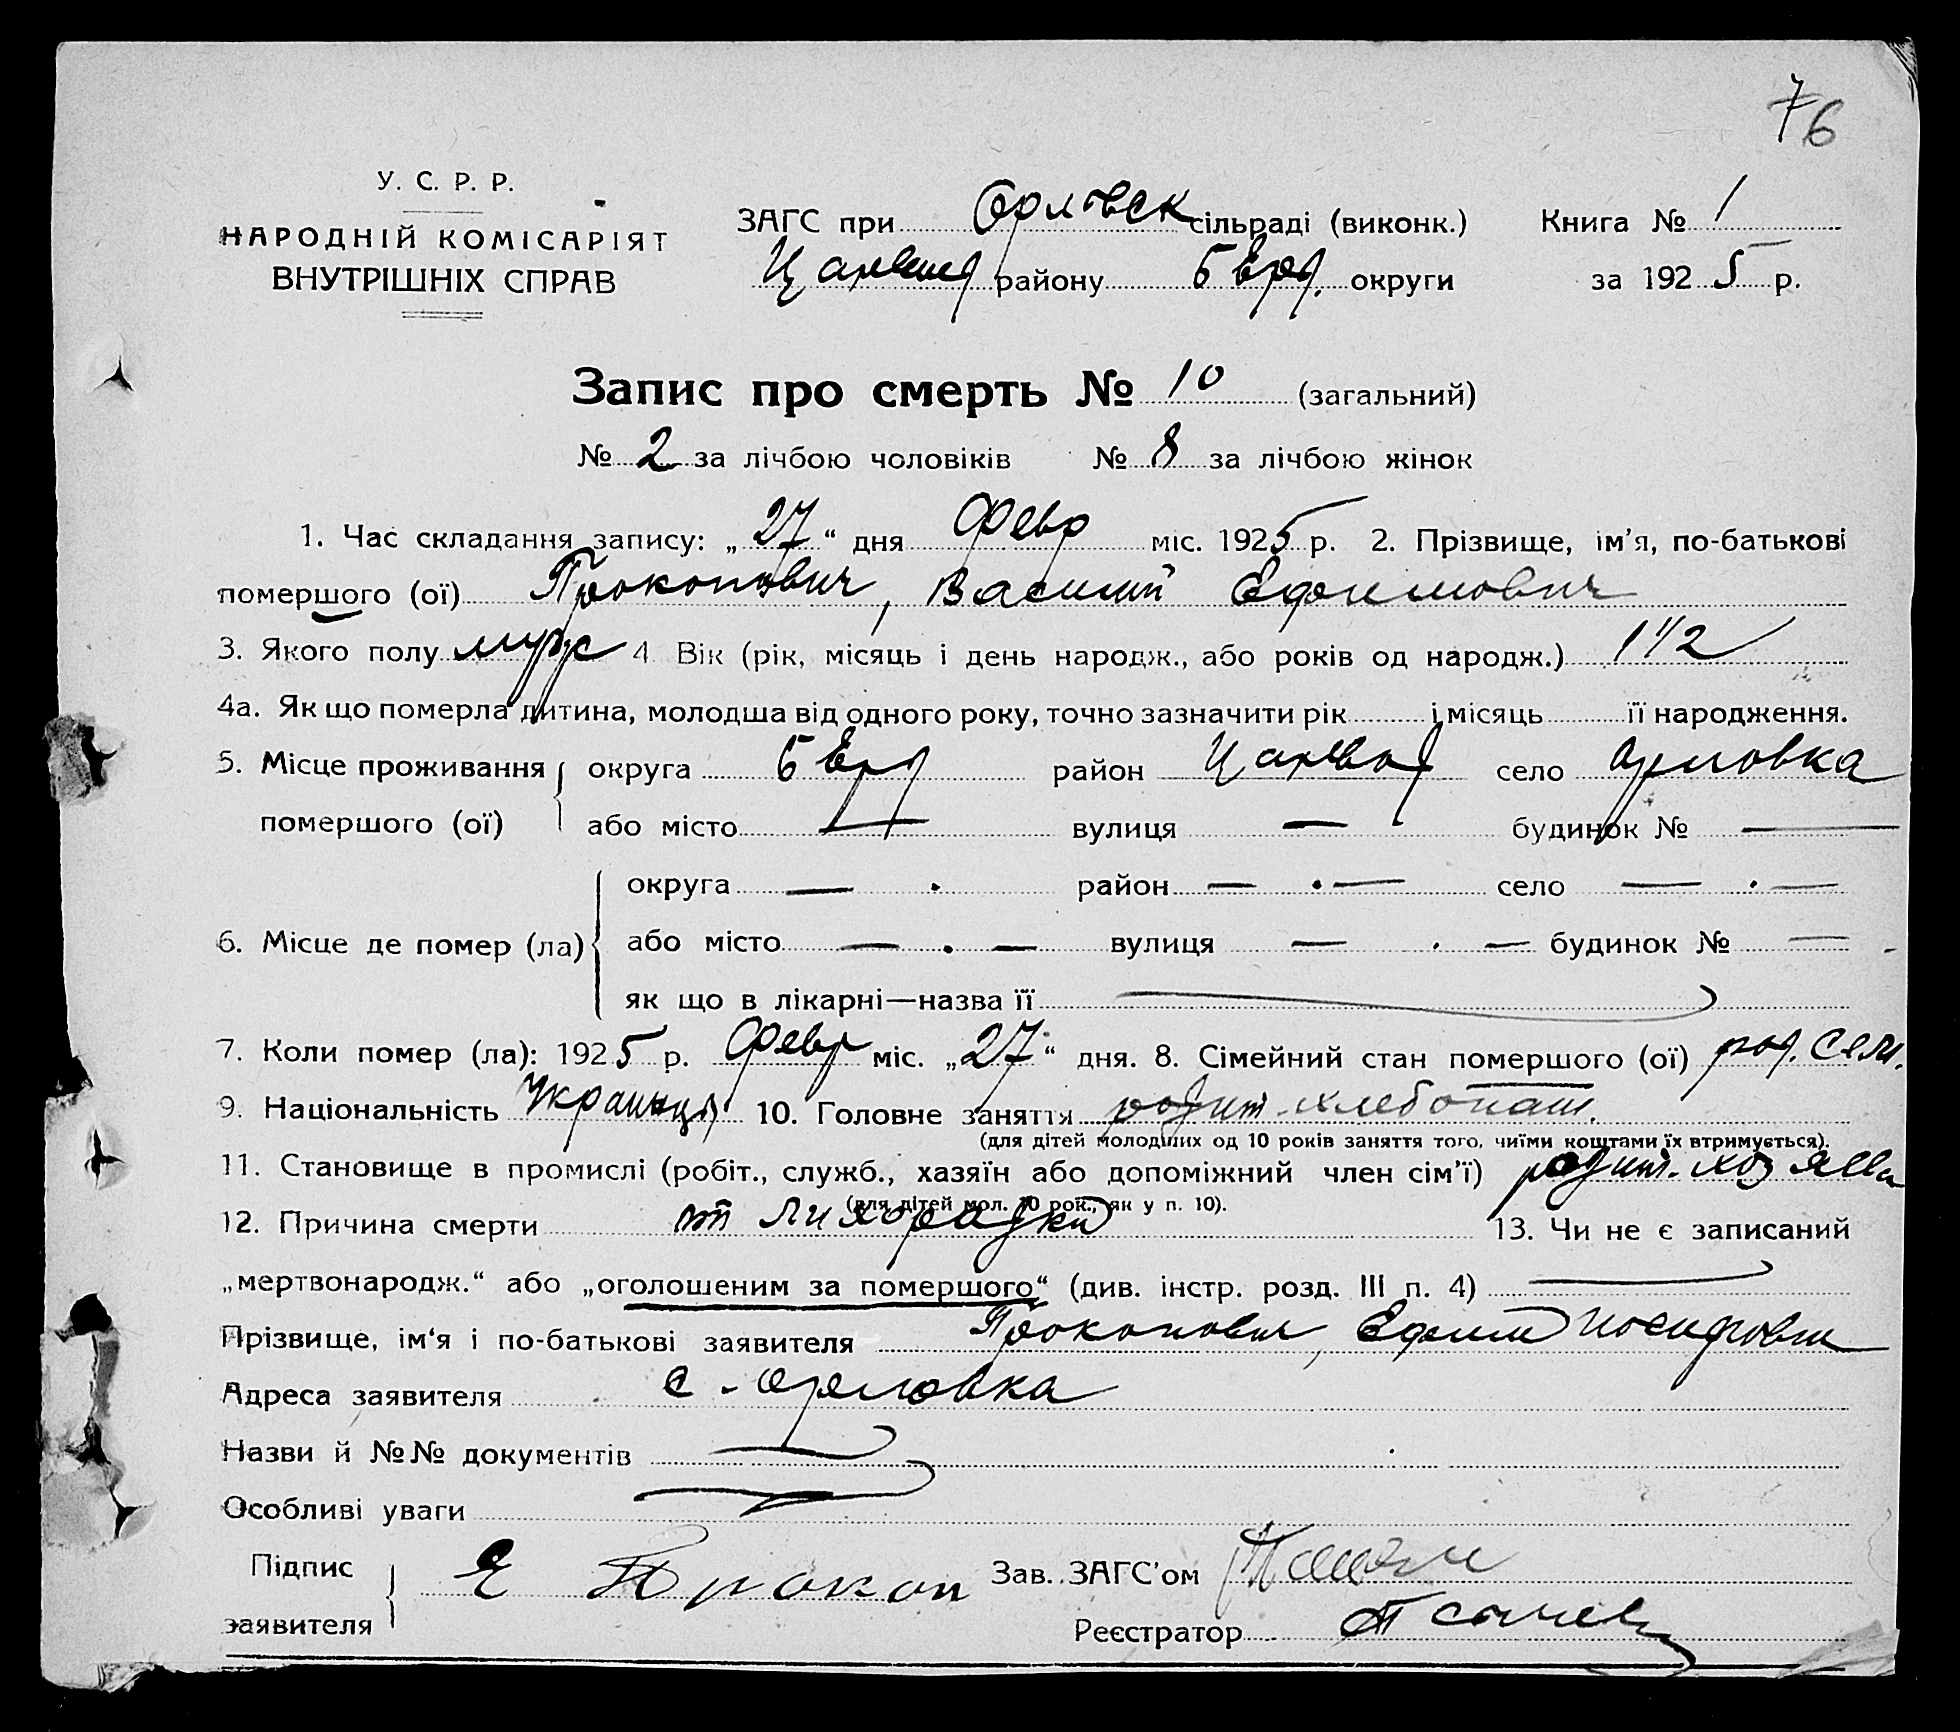 76
У. С. Р. Р.
НАРОДНІЙ КОМІСАРІЯТ
ВНУТРІШНІХ СПРАВ
ЗАГС при Орловск сільраді (виконк.) Книга № 1
району округи за 1925 р.
Запис про смерть № 10 (загальний)
№ 2 за лічбою чоловіків № 8 за лічбою жінок
1. Час складання запису: „27“ дня Февр міс. 1925 р. 2. Прізвище, ім’я, по-батькові
помершого (ої) Прокопович, Василий Ефимович
3. Якого полу муж 4. Вік (рік, місяць і день народж., або років од народж.) 1 1/2
4а. Як що померла дитина, молодша від одного року, точно зазначити рік і місяць її народження.
5. Місце проживання округа район село Орловка
помершого (ої) або місто — вулиця — будинок № —
округа — район — · — село — · —
6. Місце де помер (ла) або місто — · — вулиця — · — будинок № —
як що в лікарні—назва її
7. Коли помер (ла): 1925 р. Февр міс. „27“ дня. 8. Сімейний стан помершого (ої)
9. Національність Украинец 10. Головне заняття родит. хлебопаш.
(для дітей молодших од 10 років заняття того, чиїми коштами їх втримується).
11. Становище в промислі (робіт., служб., хазяїн або допоміжний член сім’ї) родит. хозяева
(для дітей мол. 10 рок., як у п. 10).
12. Причина смерти от лихорадки 13. Чи не є записаний
„мертвонародж.“ або „оголошеним за помершого“ (див. інстр. розд. III п. 4)
Прізвище, ім‘я і по-батькові заявителя Прокопович, Ефим Иосифович
Адреса заявителя с. Орловка
Назви й №№ документів
Особливі уваги
Підпис
заявителя Е Прокоп Зав. ЗАГС’ом
Реєстратор